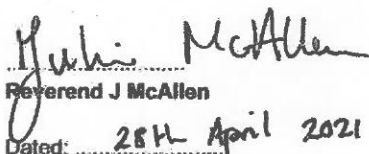 Julie McAllen
Reverend J McAllen
Dated: 28th April 2021